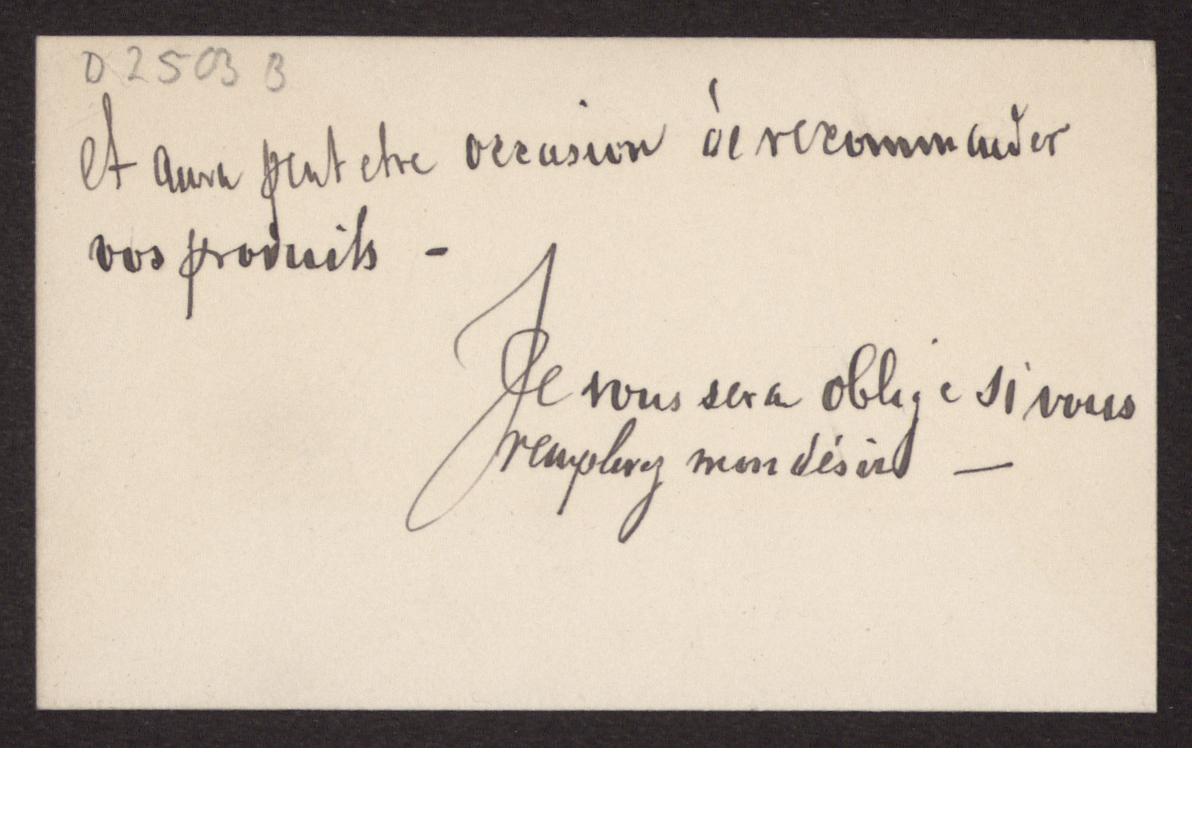 D 2503 B
et aura peut etre occasion de recommander
vos produits -
Je vous sera oblige si vous
remplirez mon désir —